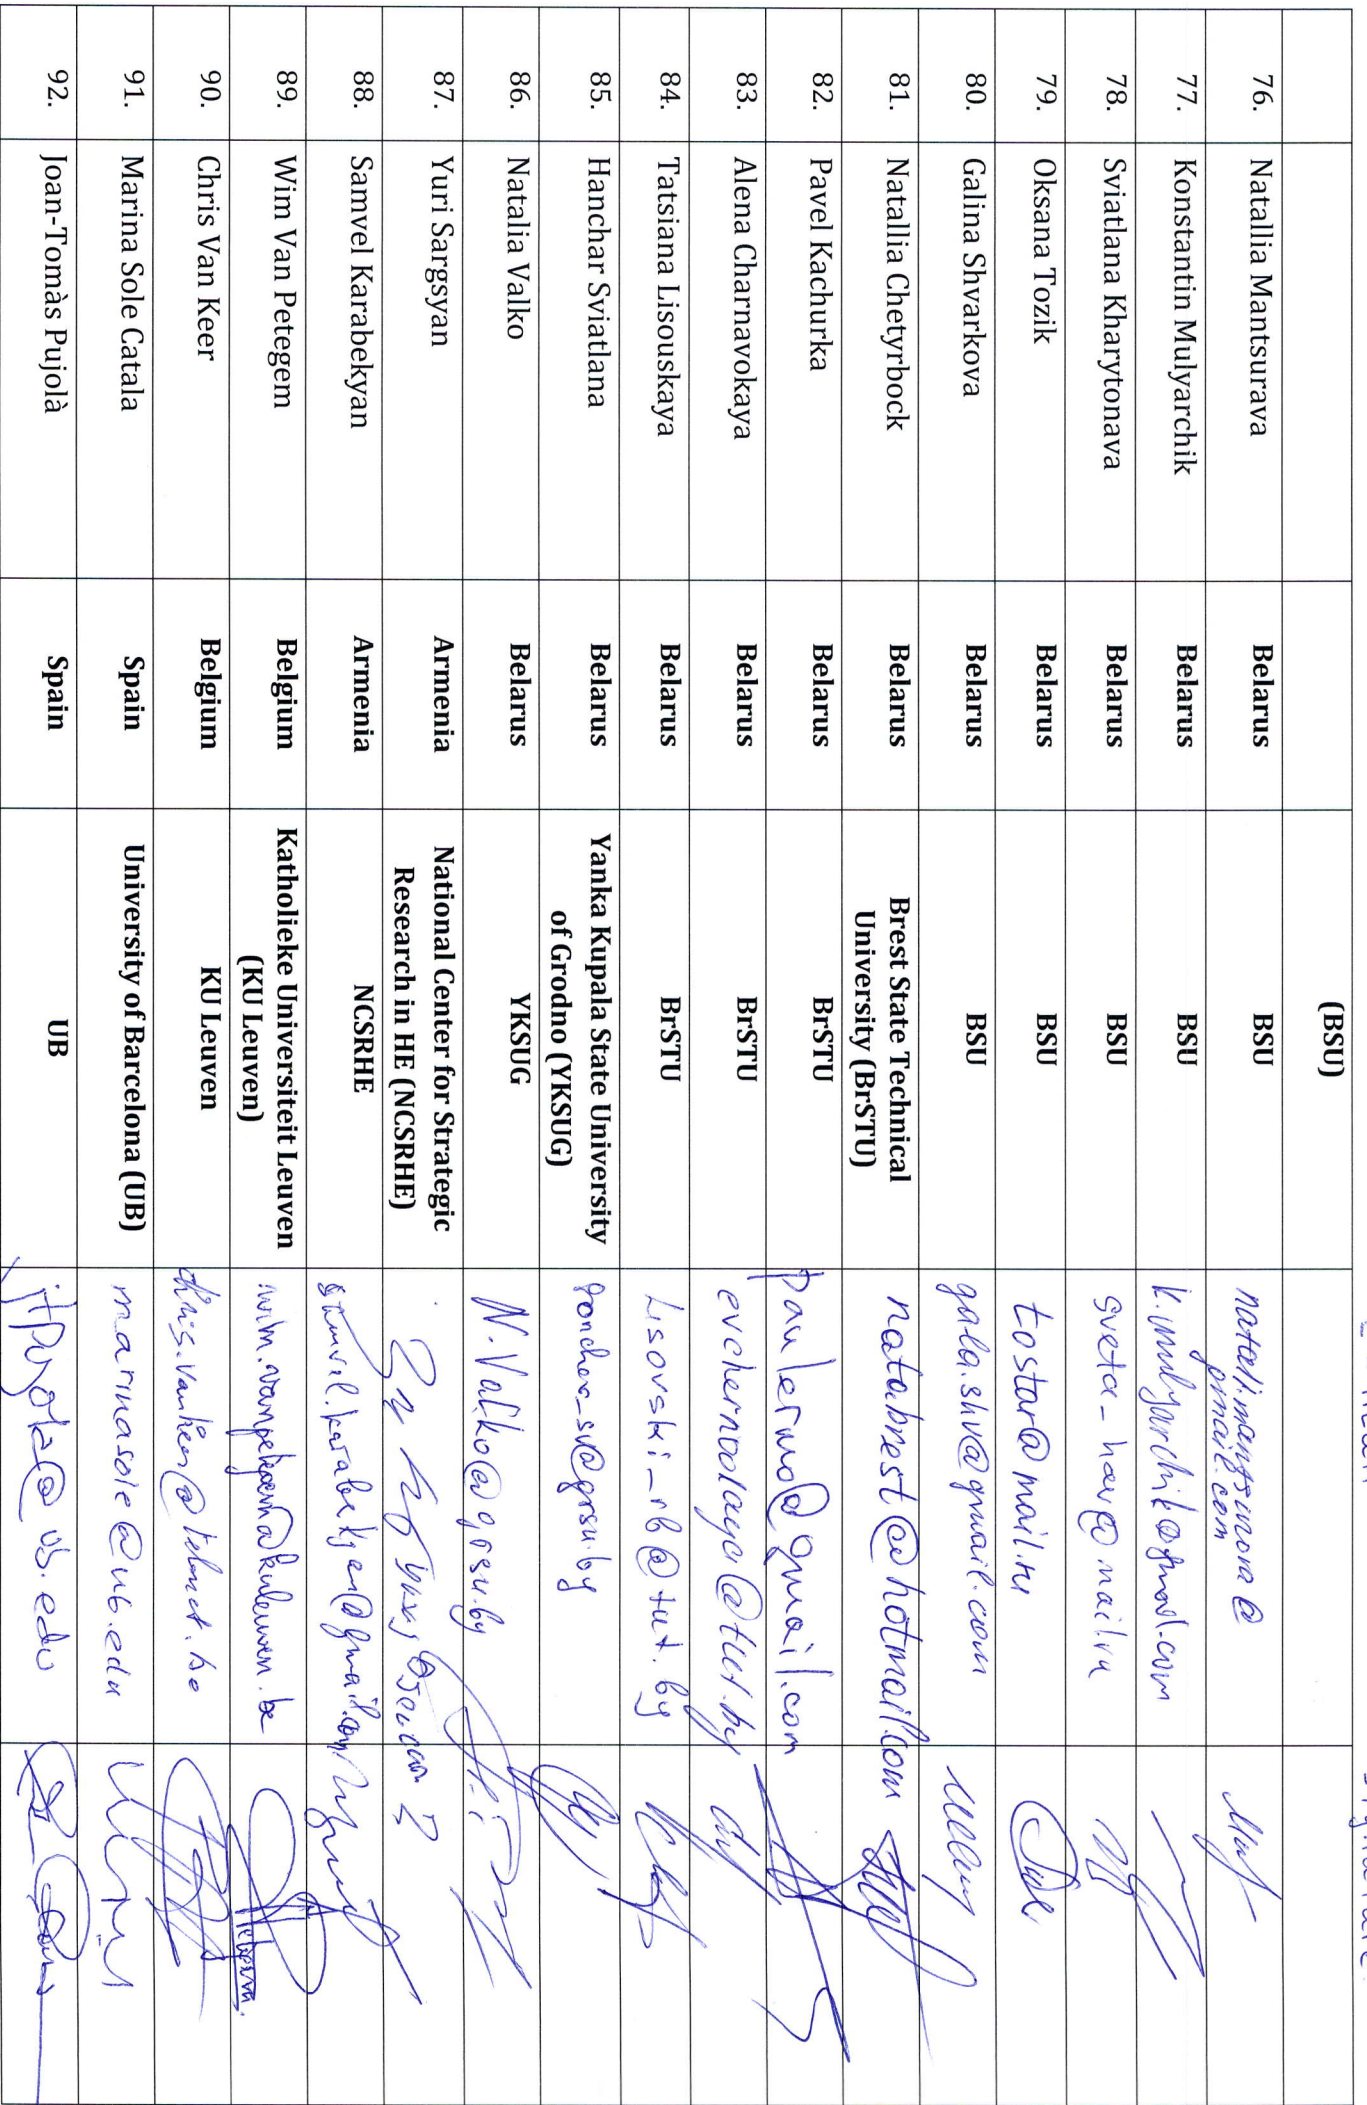 (BSU)
76. Natallia Mantsurava Belarus BSU natali.mantsurova@
gmail.com
77. Konstantin Mulyarchik Belarus BSU k.mulyarchik@gmail.com
78. Sviatlana Kharytonava Belarus BSU sveta-har@mail.ru
79. Oksana Tozik Belarus BSU tostar@mail.ru
80. Galina Shvarkova Belarus BSU gala.shv@gmail.com
81. Natallia Chetyrbock Belarus Brest State Technical
University (BrSTU) nata.brest@hotmail.com
82. Pavel Kachurka Belarus BrSTU paulermo@gmail.com
83. Alena Charnavokaya Belarus BrSTU
84. Tatsiana Lisouskaya Belarus BrSTU Lisovski-rb@tut.by
85. Hanchar Sviatlana Belarus Yanka Kupala State University
of Grodno (YKSUG) gonchar-sv@grsu.by
86. Natalia Valko Belarus YKSUG N.Valko@grsu.by
87. Yuri Sargsyan Armenia National Center for Strategic
Research in HE (NCSRHE)
88. Samvel Karabekyan Armenia NCSRHE samvel.karabekyan@gmail.com
89. Wim Van Petegem Belgium Katholieke Universiteit Leuven
(KU Leuven) wim.vanpetegem@kuleuven.be
90. Chris Van Keer Belgium KU Leuven
91. Marina Sole Catala Spain University of Barcelona (UB) marinasole@ub.edu
92. Joan-Tomàs Pujolà Spain UB jtpujola@ub.edu